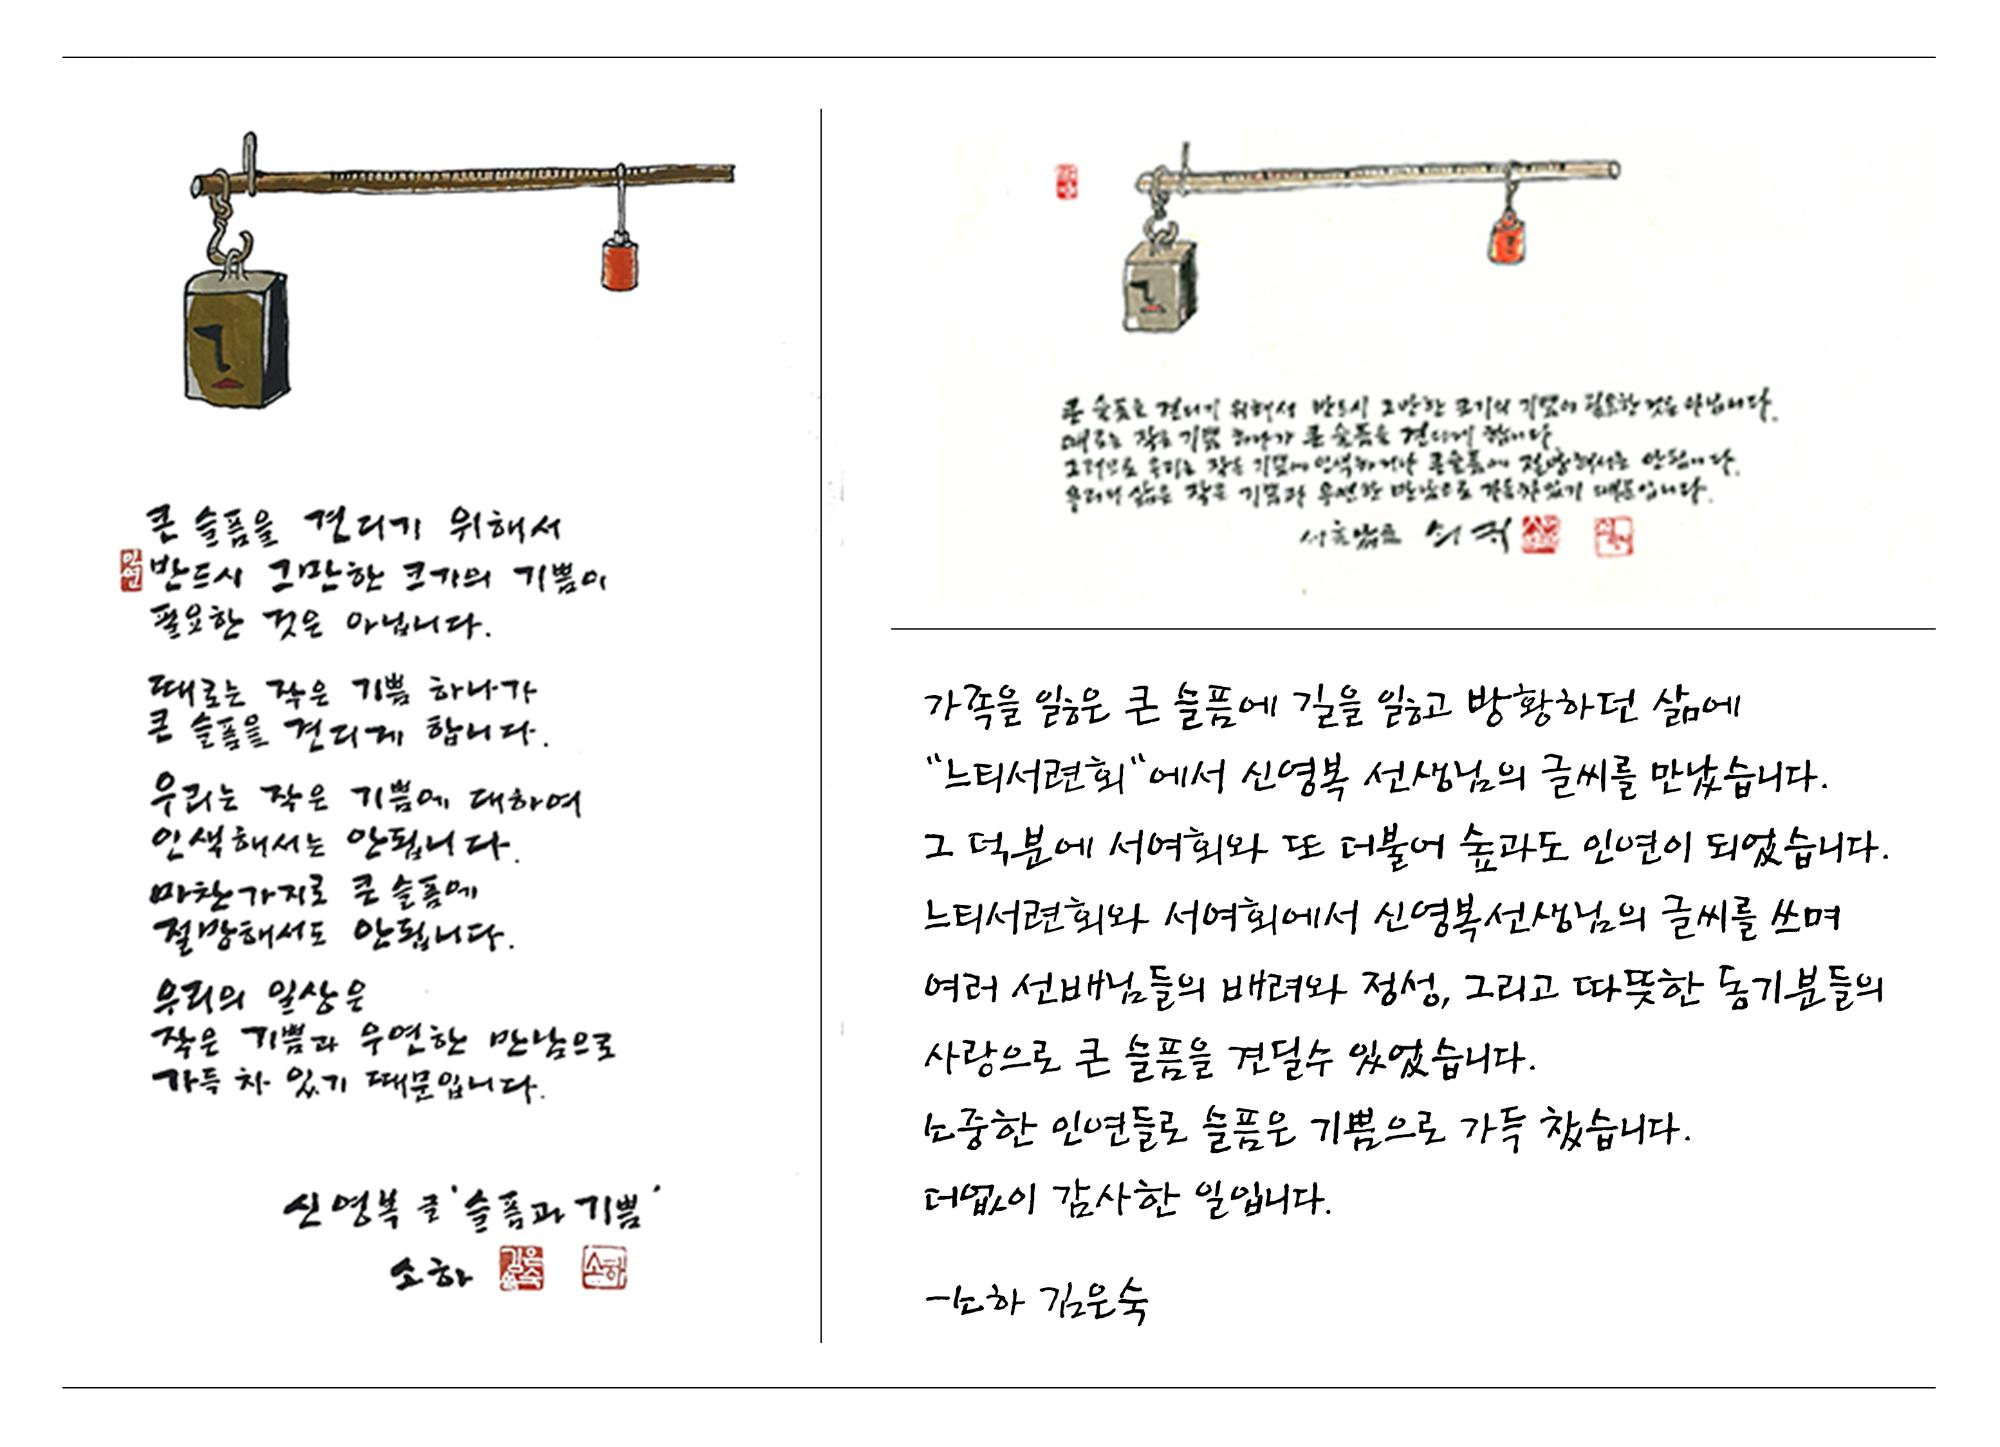 큰 슬픔을 견디기 위해서
인연
반드시 그만한 크기의 기쁨이
필요한 것은 아닙니다.
때로는 작은 기쁨 하나가
큰 슬픔을 견디게 합니다.
우리는 작은 기쁨에 대하여
인색해서는 안됩니다.
마찬가지로 큰 슬픔에
절망해서도 안됩니다.
우리의 일상은
작은 기쁨과 우연한 만남으로
가득 차 있기 때문입니다.
신영복 글 '슬픔과 기쁨'
소하 김은숙 소하
큰 슬픔을 견디기 위해서 반드시 그만한 크기의 기쁨이 필요한 것은 아닙니다.
때로는 작은 기쁨 하나가 큰 슬픔을 견디게 합니다.
그러므로 우리는 작은 기쁨에 인색하거나 큰 슬픔에 절망해서는 안됩니다.
우리의 삶은 작은 기쁨과 우연한 만남으로 가득차있기 때문입니다.
쇠귀
가족을 잃은 큰 슬픔에 길을 잃고 방황하던 삶에
"느티서련회"에서 신영복 선생님의 글씨를 만났습니다.
그 덕분에 서여회와 또 더불어 숲과도 인연이 되었습니다.
느티서련회와 서여회에서 신영복선생님의 글씨를 쓰며
여러 선배님들의 배려와 정성, 그리고 따뜻한 동기분들의
사랑으로 큰 슬픔을 견딜수 있었습니다.
소중한 인연들로 슬픔은 기쁨으로 가득 찼습니다.
더없이 감사한 일입니다.
-소하 김은숙